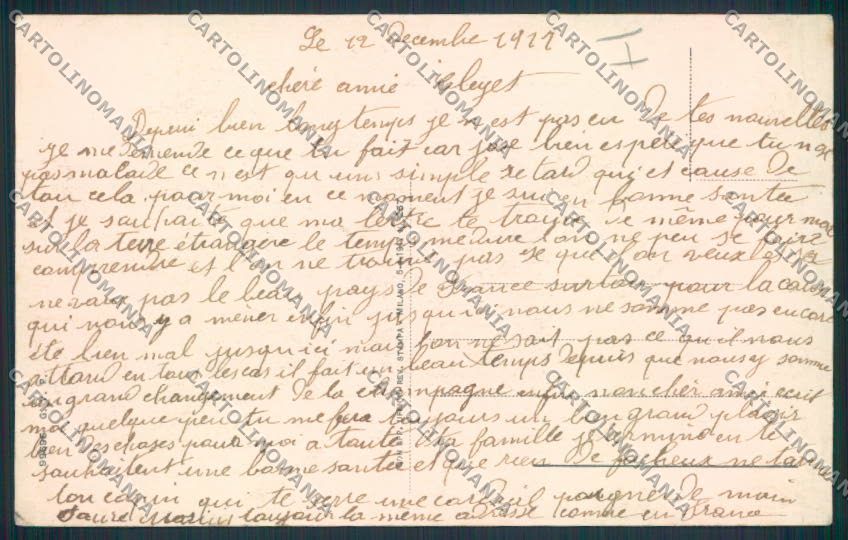 Le 12 Decembre 1917
chéré amie Gleyet
Depeui bien longtemps je n est pas eu de tes nouvelles
je me demende ce que tu fait car jose bien espere que tu nez
pas malade ce n est qu une simple retard qui et cause de
tou cela pour moi en ce moment je sui en bonne sante
et je souhaite que ma lettre te trouve de même pour moi
sur la terre étrangère le temps me dure lon ne peu se faire
comprendre et l on ne trouve pas se que l on veux et ça
ne vau pas le beau pays de France surtout pour la cause
qui nous y a mener enfin jusqu ici nous ne somme pas encore
été bien mal jusqu ici mais lon ne sait pas ce qu il nous
attend en tout les cas il fait un beau temps depuis que nous y somme
un grand changement de la champagne enfin mon cher ami ecrit
moi quelque peu tu me fera toujours un bon grand plaisir
bien des choses pour moi a toute ta famille je termine en te
souhaitent une bonne santée et que rien de facheux ne t
ton copin qui te serre une cordial poigne de main
Faure Marius toujour la même adresse comme en France
CARTOLINOMANIA